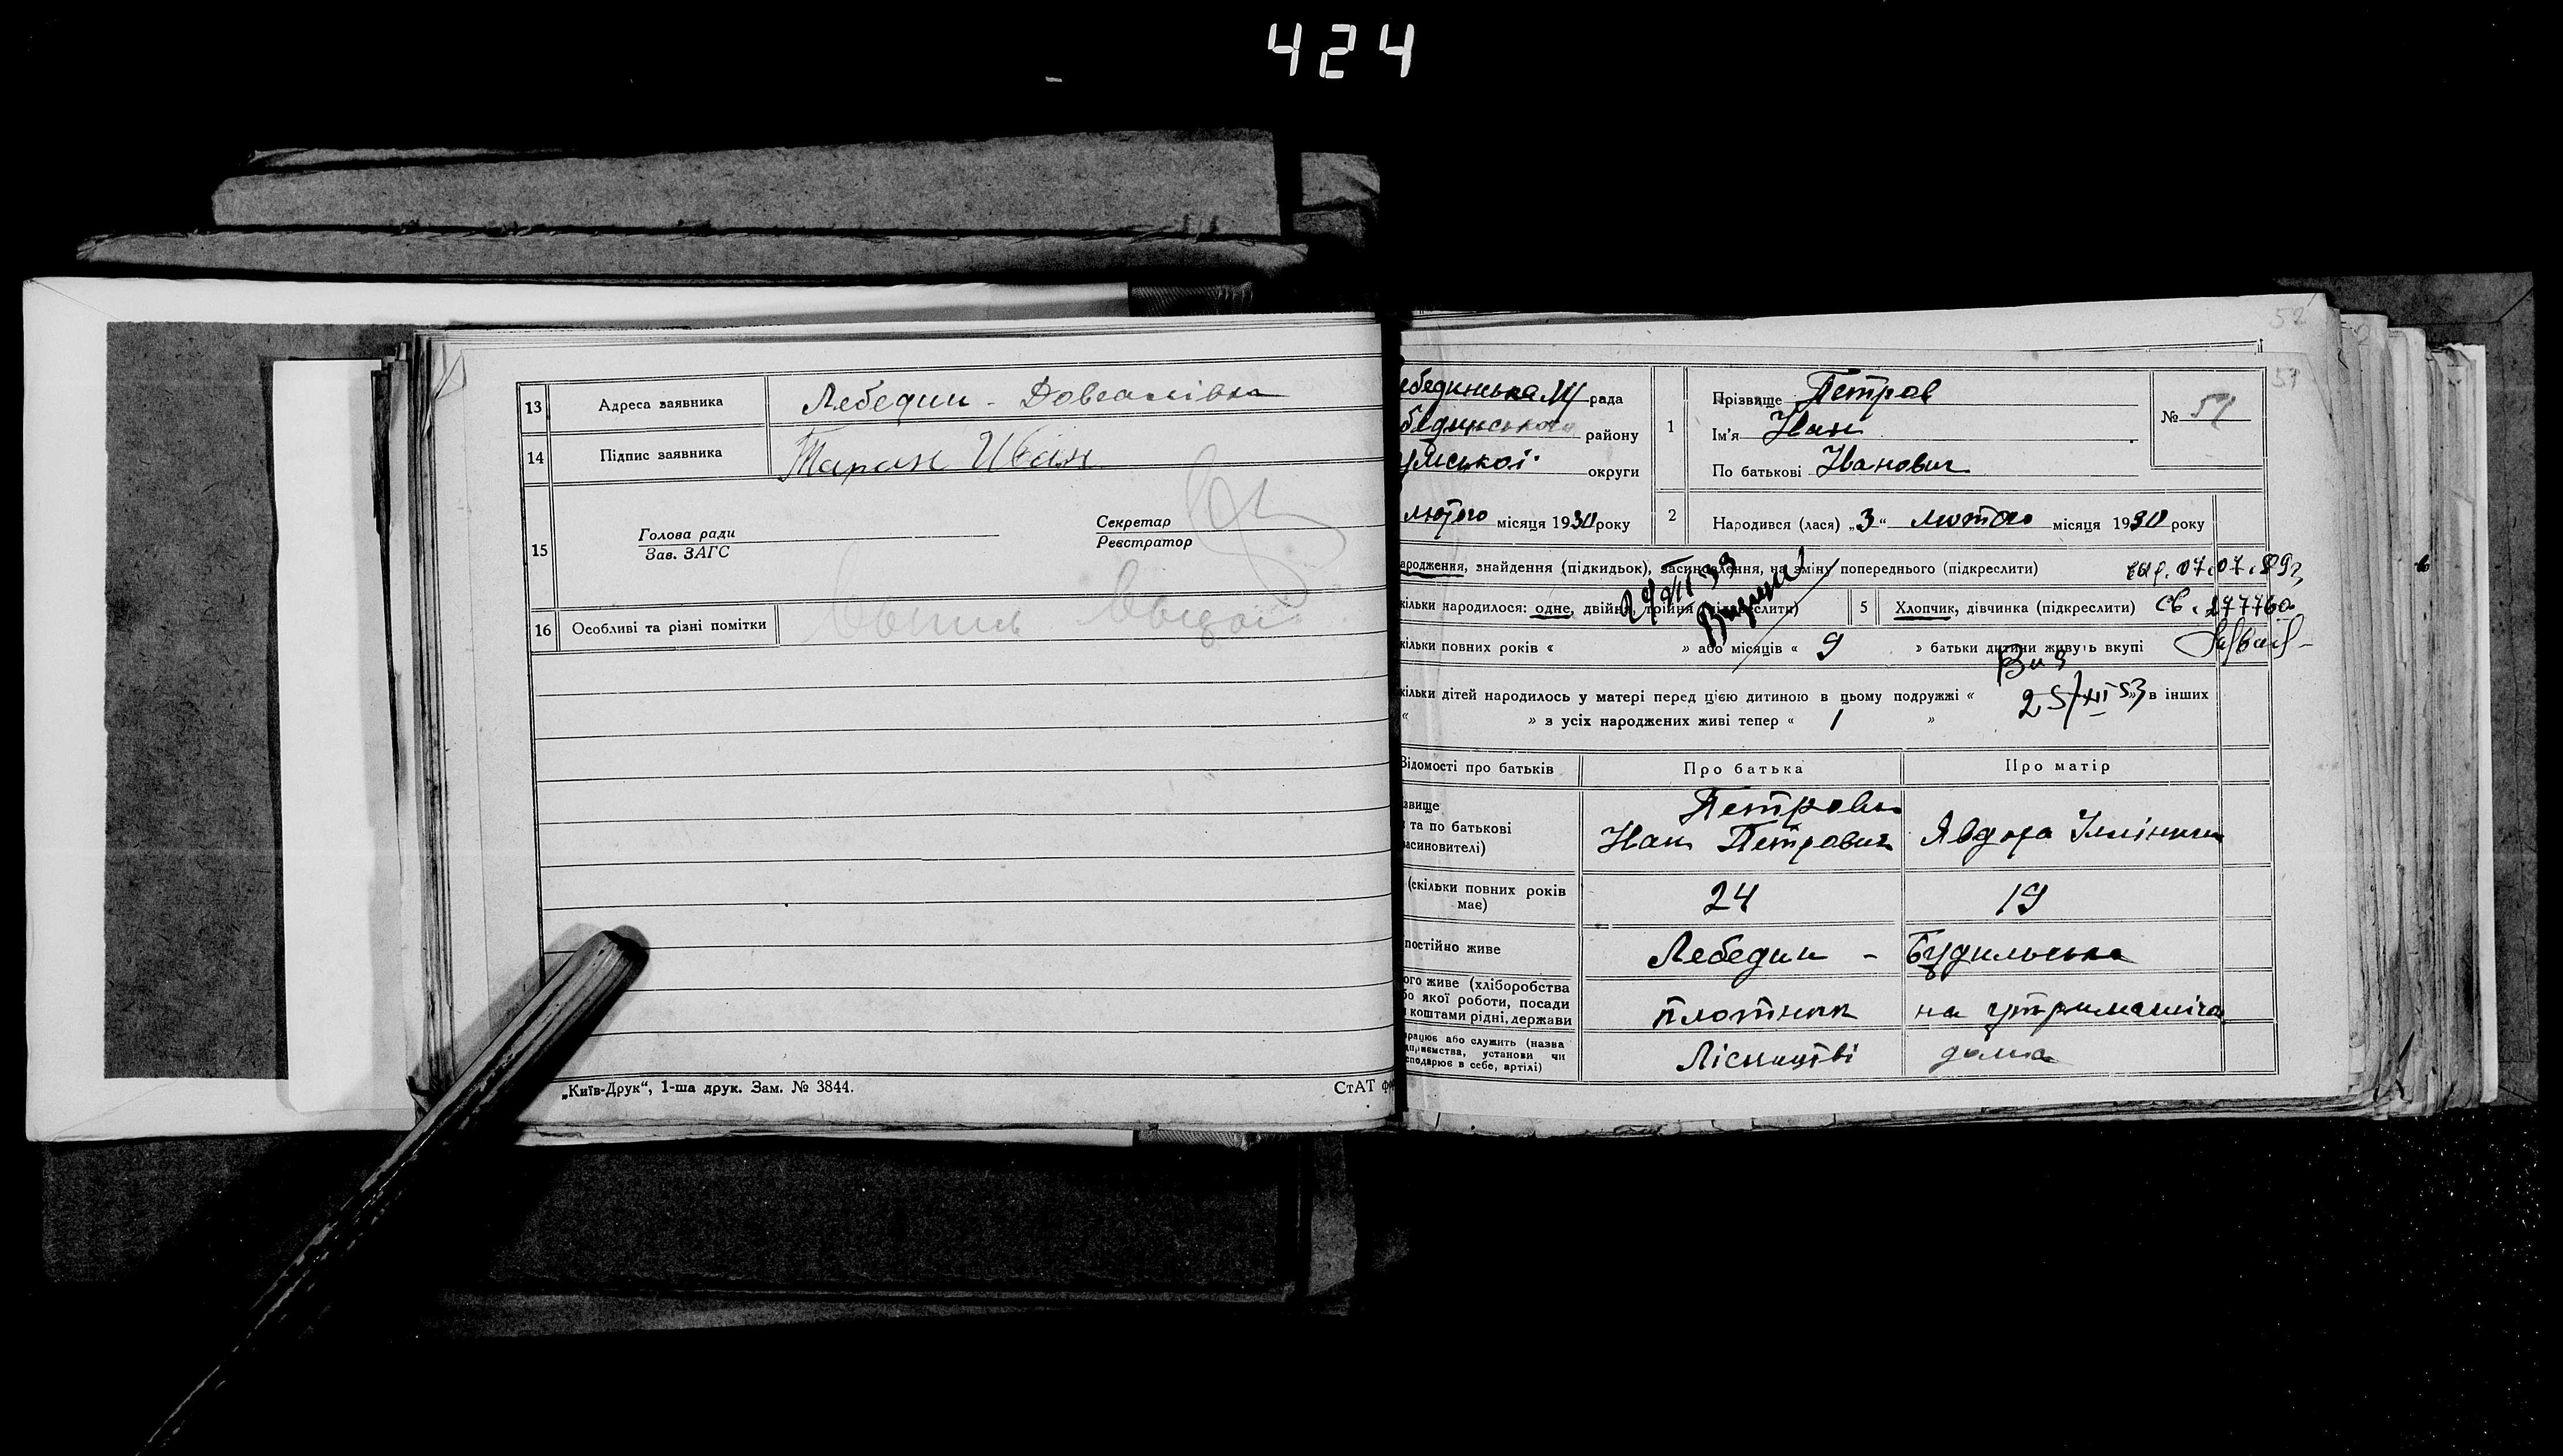 424
13 Адреса заявника Лебедин - Довгалівка
14 Підпис заявника Таран Иван
15 Голова ради
Зав. ЗАГС
Секретар
Реєстратор
16 Особливі та різні помітки
„Київ-Друк“, 1-ша друк. Зам. № 3844.
СтАТ ф
52
51
ебединська М рада
бединського району
умської округи
лютого місяця 1930 року
1 Прізвище Петров
Ім'я Іван
По батькові Іванович
№ 51
2 Народився (лася) „3“ лютого місяця 1930 року
ародження, знайдення (підкидьок), засиновлення, на зміну попереднього (підкреслити)
07.07.89г.
29/VII 33
кільки народилося: одне, двійня, трійня (підкреслити) 5 Хлопчик, дівчинка (підкреслити)
св. 277760
кільки повних років « » або місяців « 9 » батьки дитини живуть вкупі
кільки дітей народилось у матері перед цією дитиною в цьому подружжі « » в інших
25/XII 53
« » з усіх народжених живі тепер « 1 »
Відомості про батьків Про батька Про матір
звище
та по батькові
асиновителі)
Петрови
Іван Петрович Явдоха
(скільки повних років
має) 24 19
постійно живе Лебедин - Будильська
ого живе (хліборобства
бо якої роботи, посади
коштами рідні, держави
плотник на утриманні
рацює або служить (назва
дприємства, установи чи
сподарює в себе, артілі)
Лісництві дома